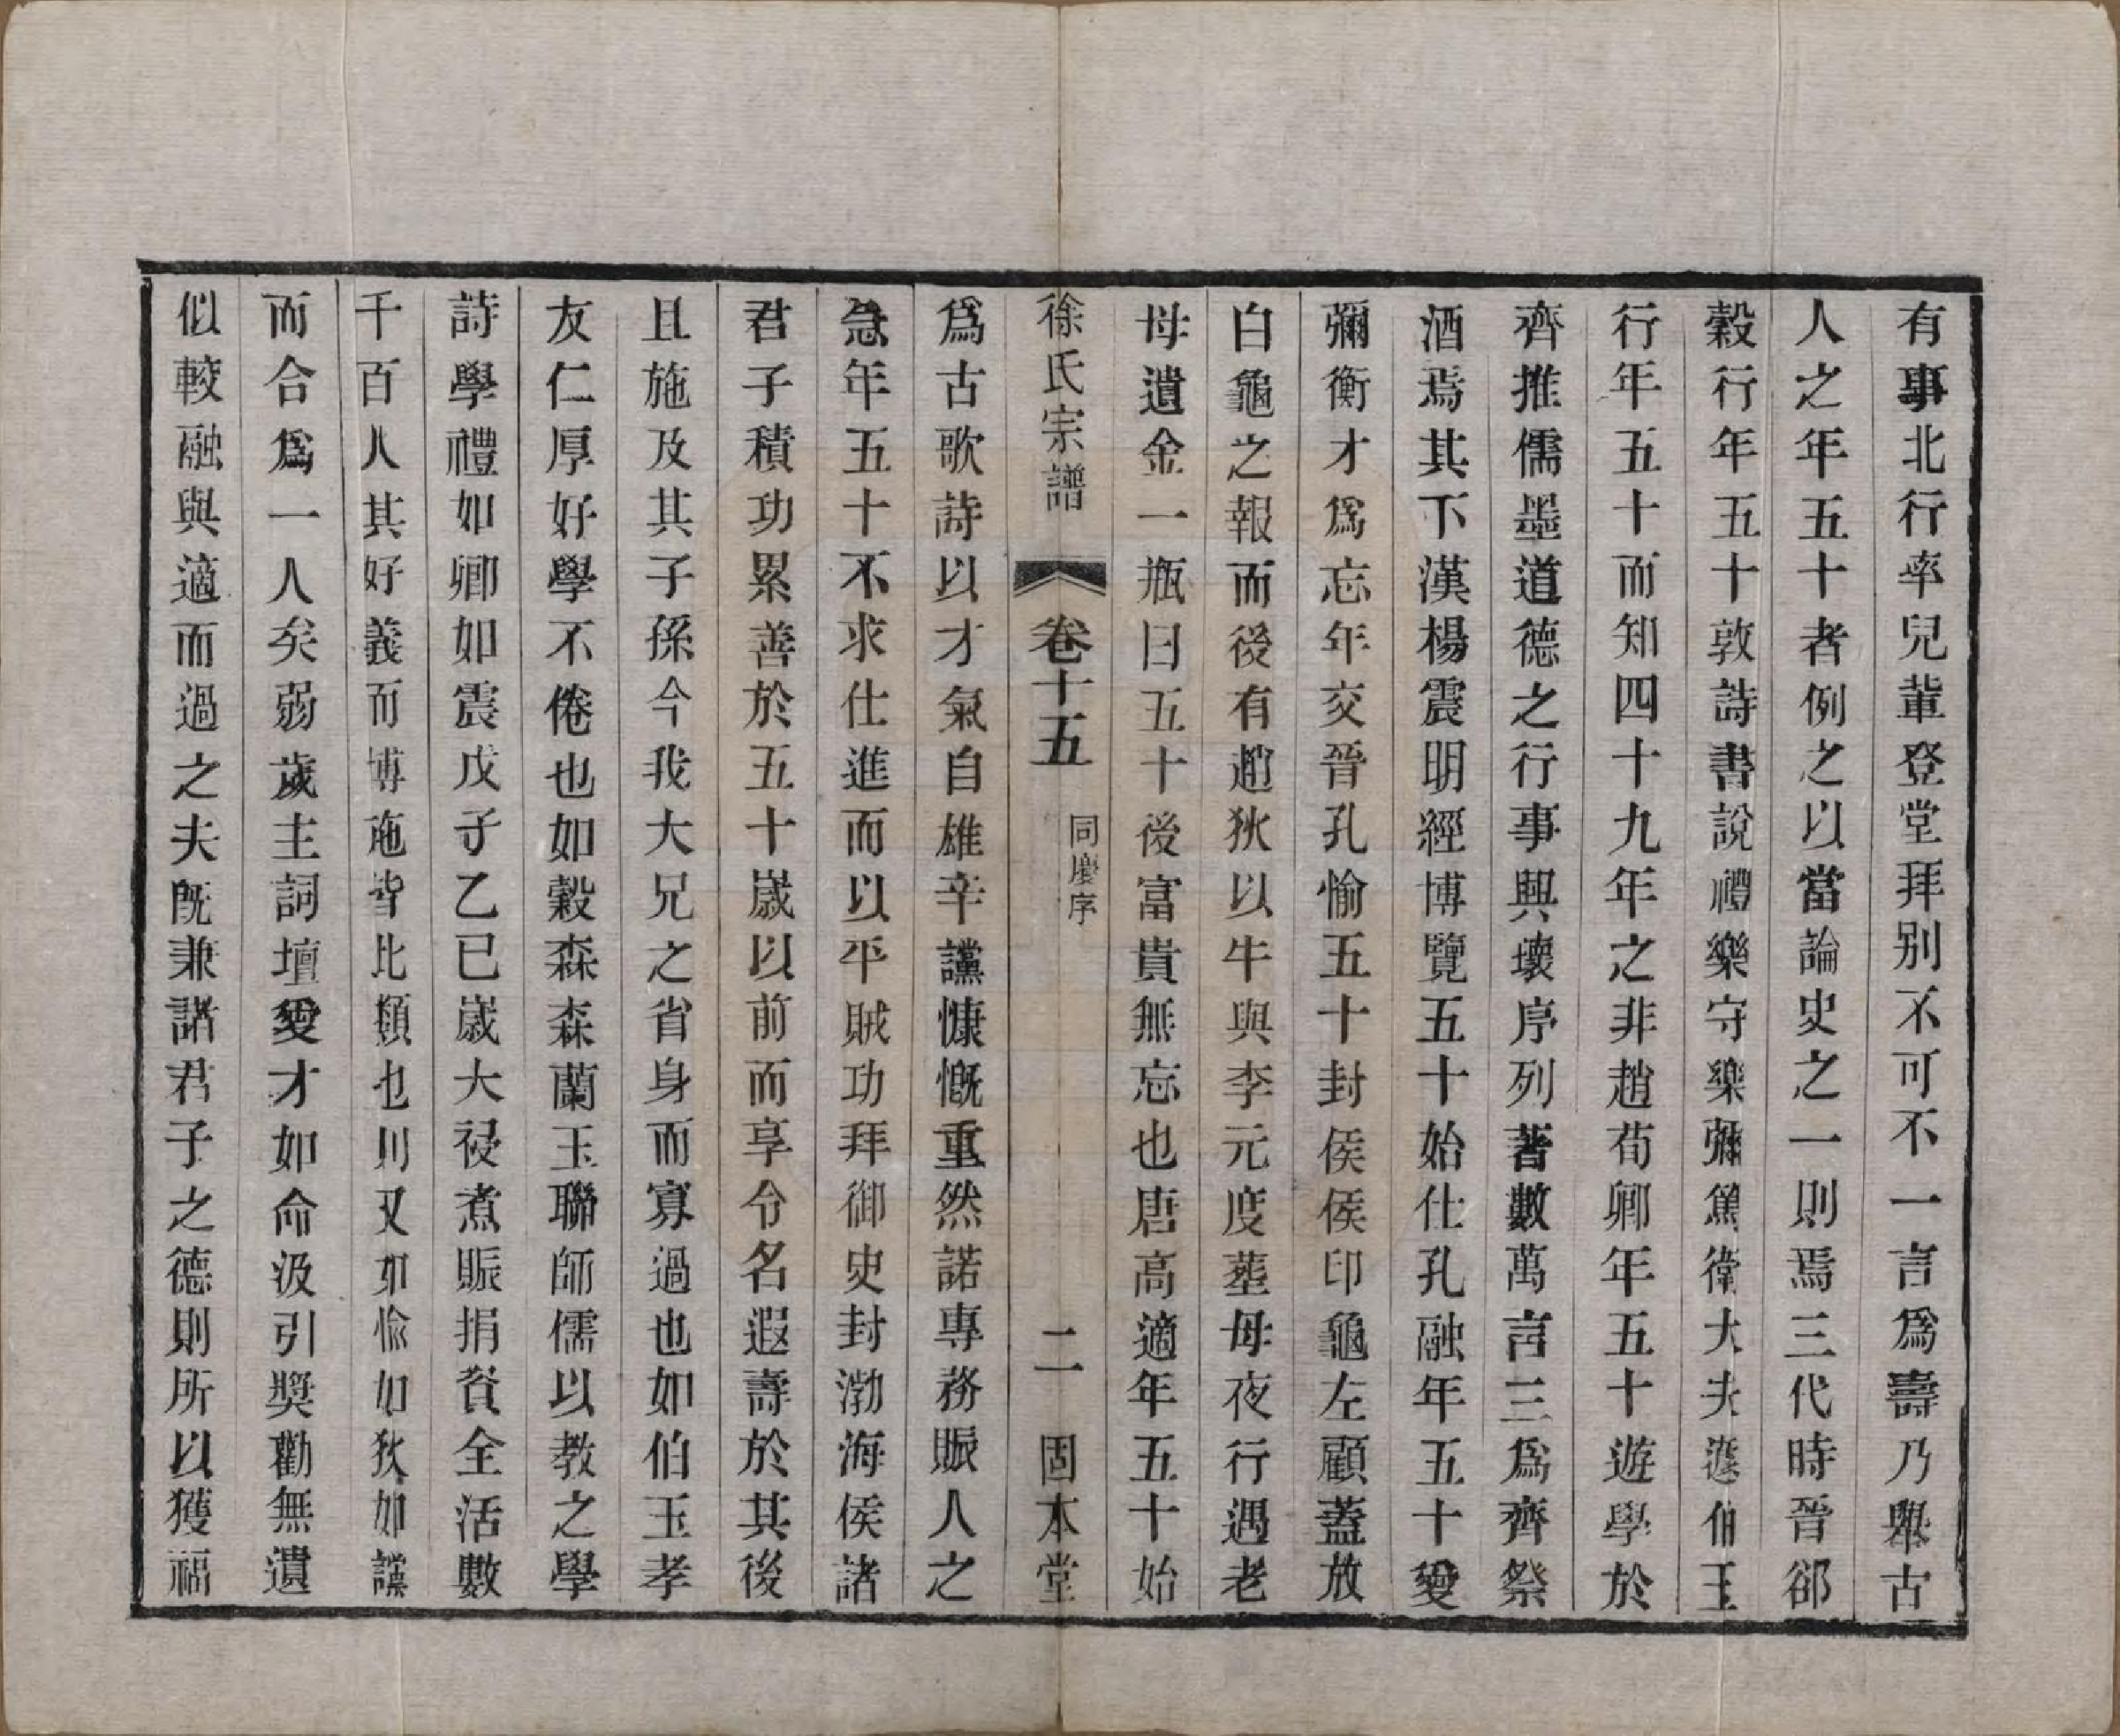 有事北行率兒輩登堂拜别不可不一言爲壽乃舉古
人之年五十者例之以當論史之一則焉三代時晉郤
縠行年五十敦詩書說禮樂守樂彌篤衛大夫蘧伯玉
行年五十而知四十九年之非趙荀卿年五十遊學於
齊推儒墨道德之行事興壞序列著數萬言三爲齊祭
酒焉其下漢楊震明經博覽五十始仕孔融年五十愛
彌衡才爲忘年交晉孔愉五十封侯侯印龜左顧蓋放
白龜之報而後有趙狄以牛與李元度塟母夜行遇老
母遺金一瓶曰五十後富貴無忘也唐高適年五十始
徐氏宗譜 卷十五 同慶序 二 固本堂
爲古歌詩以才氣自雄辛讜慷慨重然諾專務賑人之
急年五十不求仕進而以平賊功拜御史封渤海侯諸
君子積功累善於五十歲以前而享令名遐壽於其後
且施及其子孫今我大兄之省身而寡過也如伯玉孝
友仁厚好學不倦也如縠森森蘭玉聯師儒以教之學
詩學禮如卿如震戊子乙巳歲大祲煮賑捐貲全活數
千百人其好義而博施皆比類也則又如愉如狄如讜
而合爲一人矣弱歲主詞壇愛才如命汲引奬勸無遺
似較融與適而過之夫既兼諸君子之德則所以獲福